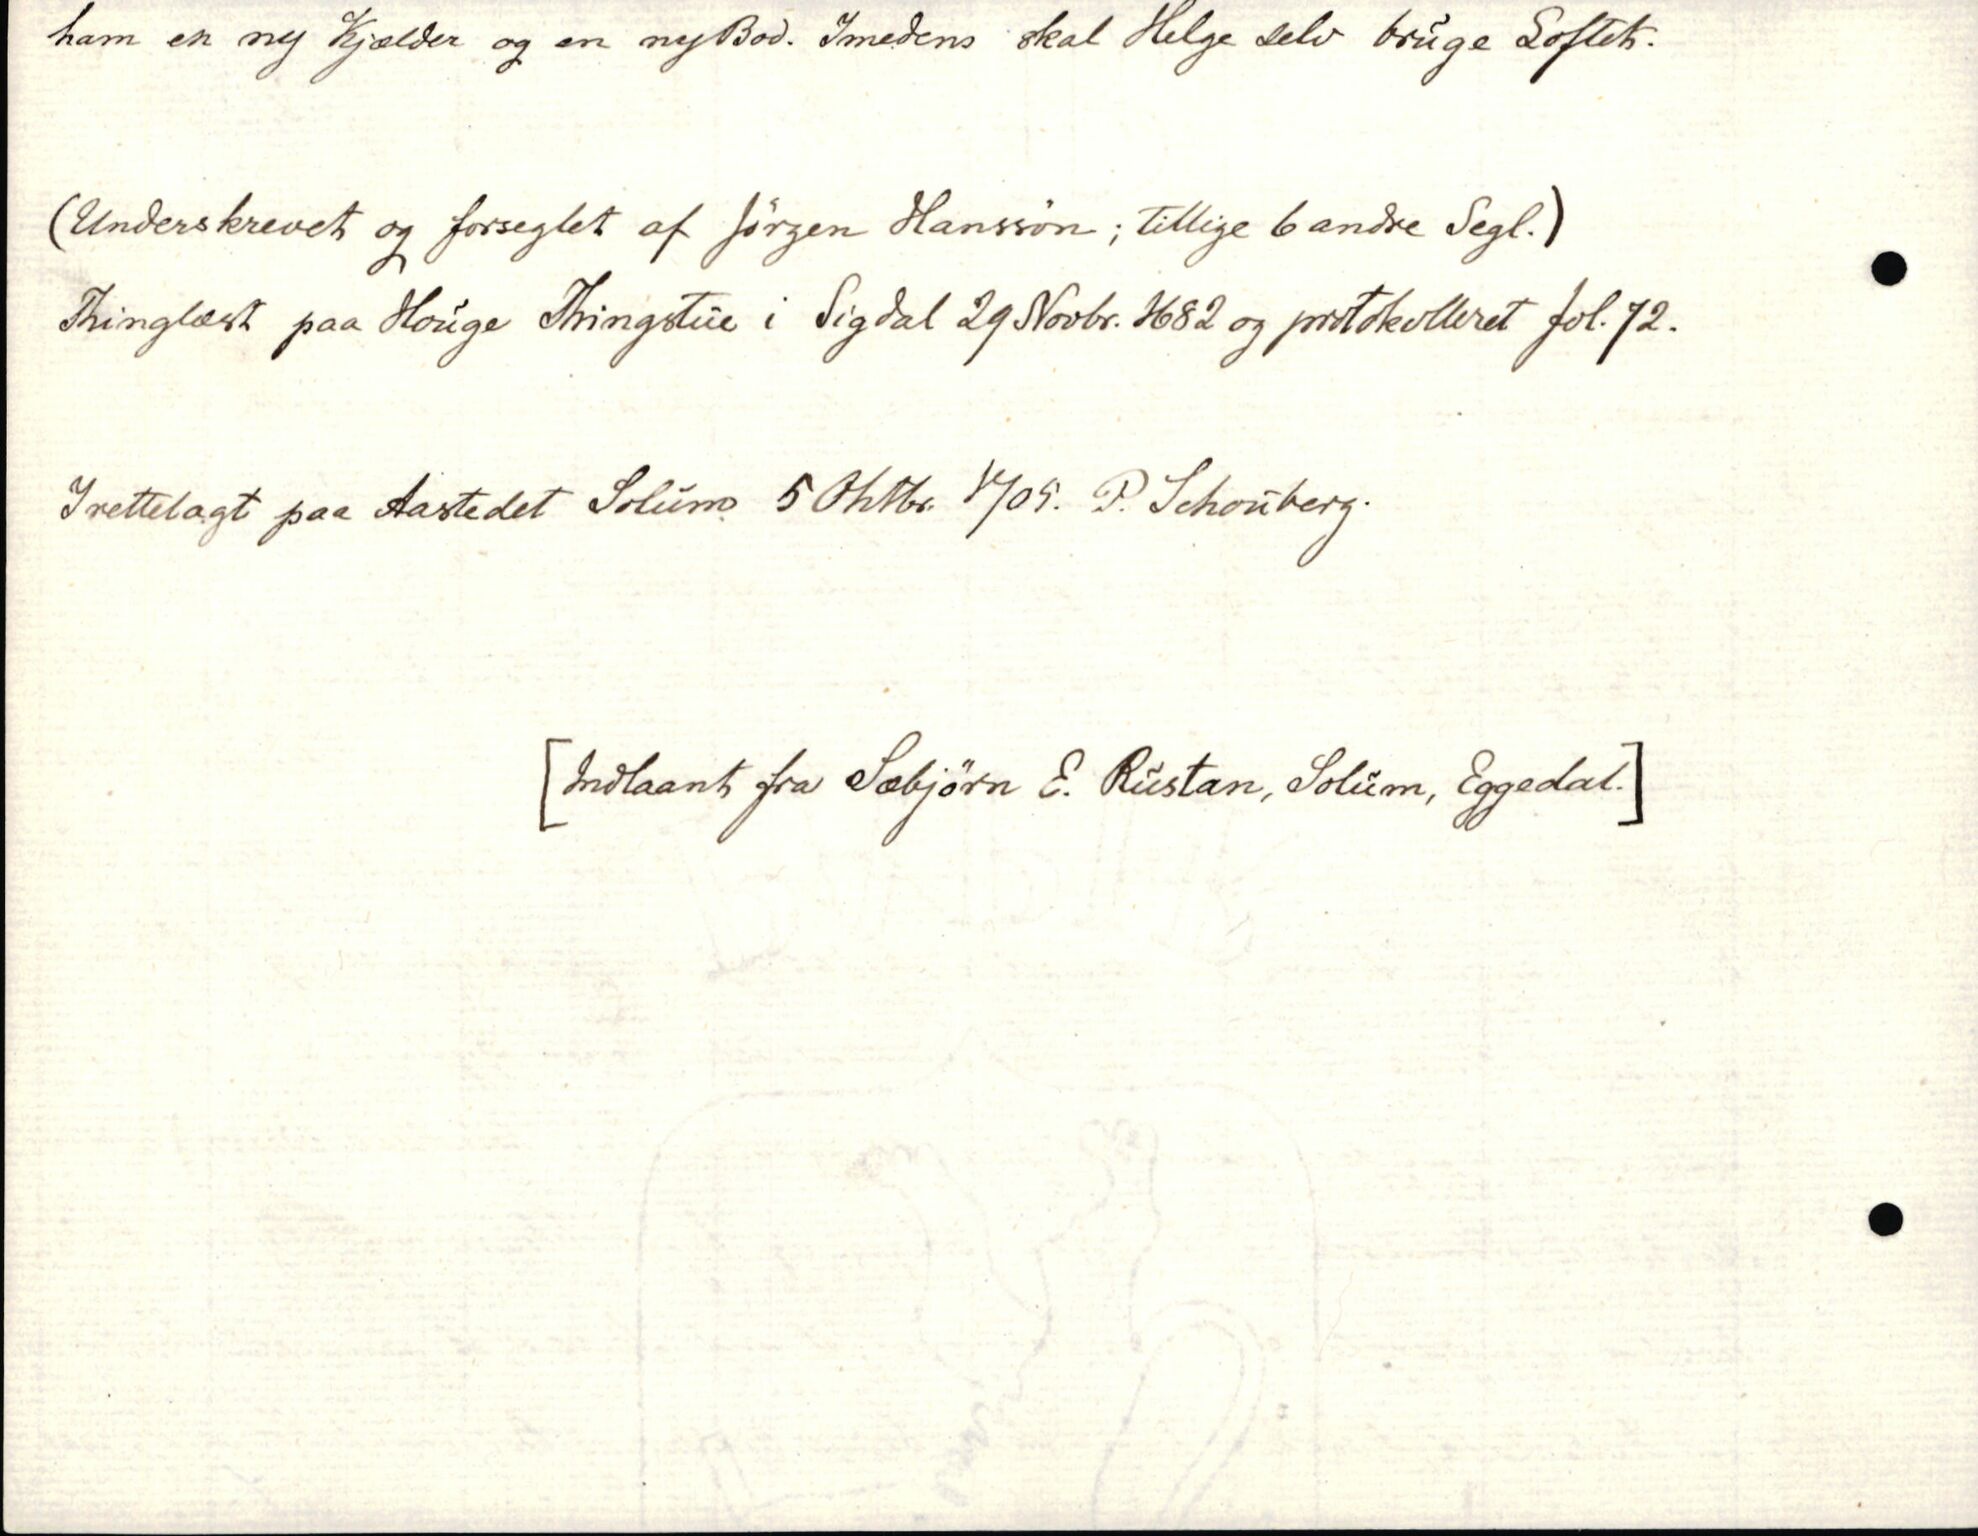 ham en ny Kjælder og en ny Bod. Imedens skal Helge selv bruge Loftet.
(Underskrevet og forseglet af Jörgen Hanssön; tillige 6 andre Segl.)
Thinglæst paa Houge Thingstue i Sigdal 29 Novbr. 1682 og protokolleret fol. 72.
Irettelagt paa Aastedet Solum 5 Oktbr. 1705. P. Schouberg.
[Indlaant fra Sæbjörn E. Rustan, Solum, Eggedal.]